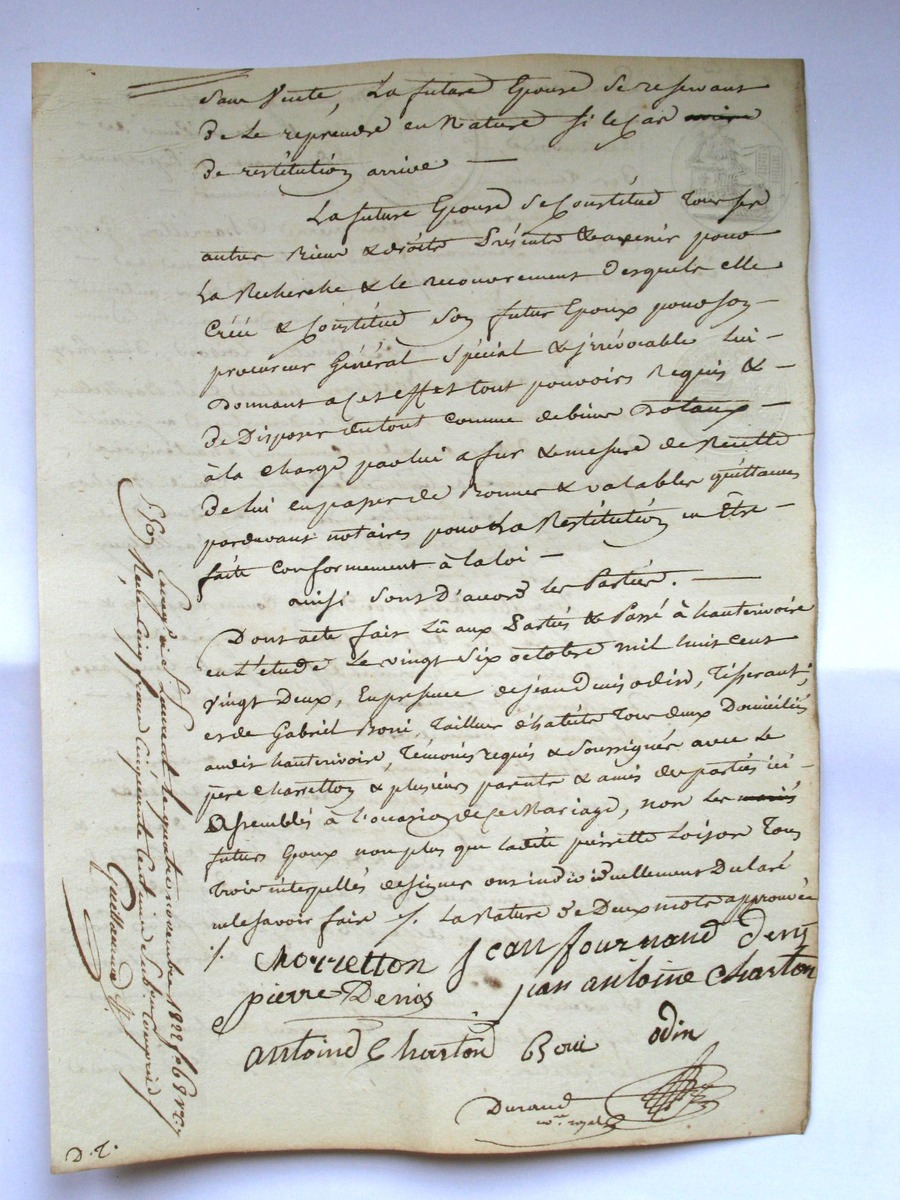 Sans Vente, La future Epouse Se reservant
de Le reprendre en Nature Si le Cas
de restitution arrive —
La future Epouse Se Constitue Tous ses
autres Biens & droits Présents & avenir pour
La Recherche & le recouvrement Desquels elle
Créée & Constitue Son futur Epoux pour Son
procureur Général Spécial & jrrévocable Lui
Donnant a Cet effet tout pouvoirs Requis &
de Disposer du tout Comme de biens Dotaux —
à la Charge par lui a fur & mesure de Recette
de lui en passer de Bonnes & valables quittances
pardevant notaires pour La Restitution en Être
faite Conformement à la loi —
ainsi Sont D'accord les Parties. —
Dont acte fait Lû aux Parties & Passé à hauterivoire
en L'etude Le vingt Six octobre mil huit cent
vingt Deux, En presence de jean Denis odin, Tisserant,
et de Gabriel Boni, Tailleur d'habits Tous deux Domiciliés
audit hauterivoire, Témoins requis & Soussignés avec Le
père Charretton & plusieurs parents & amis des parties ici
Assemblés à L'occasion de Ce Mariage, non Les
futurs Epoux non plus que ladite pierrette Loison Tous
Trois interpellés de signer ont individuellement Declaré
ne le Savoir faire ./. La Rature de Deux mots approuvée
./.
Charretton jean fournand Denis
pierre Denis jean antoine Charton
antoine Charton Boni odin
Durand
no.re royal
D. T.
Enreg. à St Laurent le quatre novembre 1822 fo 68 ro
Reçu Cinq francs Cinquante Centimes Subvention
Guillaume